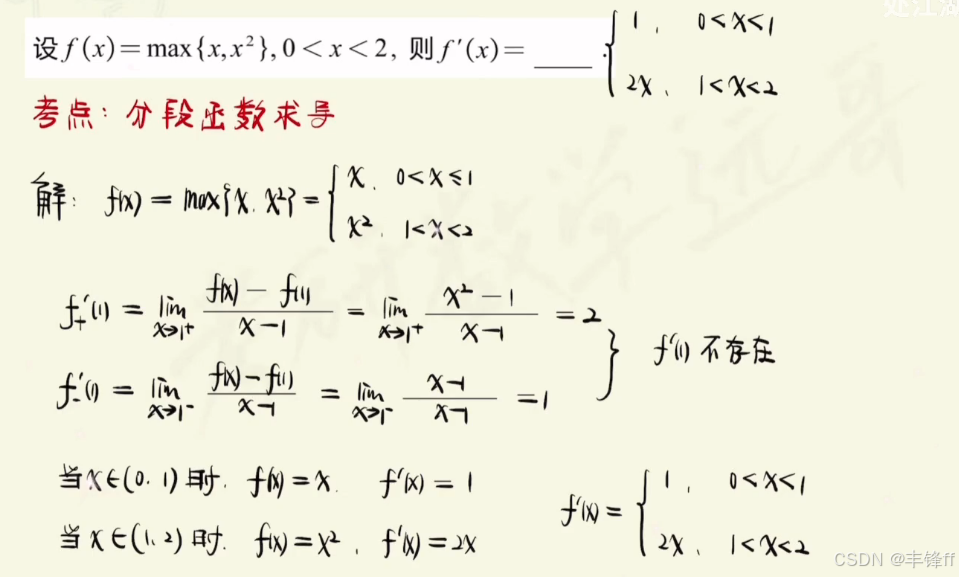 设 f(x)=max{x,x²},0<x<2, 则 f′(x)= ____ . { 1, 0<x<1
2x, 1<x<2
考点: 分段函数求导
解: f(x) = max{x, x²} = { x, 0<x≤1
x², 1<x<2
f₊′(1) = lim x→1⁺ (f(x) − f(1))/(x−1) = lim x→1⁺ (x²−1)/(x−1) = 2
f₋′(1) = lim x→1⁻ (f(x)−f(1))/(x−1) = lim x→1⁻ (x−1)/(x−1) = 1
} f′(1) 不存在
当x∈(0, 1)时, f(x) = x, f′(x) = 1
当x∈(1, 2)时, f(x) = x², f′(x) = 2x
f′(x) = { 1, 0<x<1
2x, 1<x<2
CSDN @丰锋ff